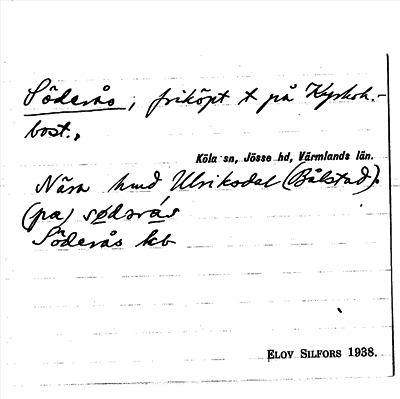 Söderås, friköpt t på Kyrkoh.-
bost.,
Köla sn, Jösse hd, Värmlands län.
Nära hmd Ulriksdal (Bålstad).
(pa) sødərás
Söderås kb
ELOV SILFORS 1938.